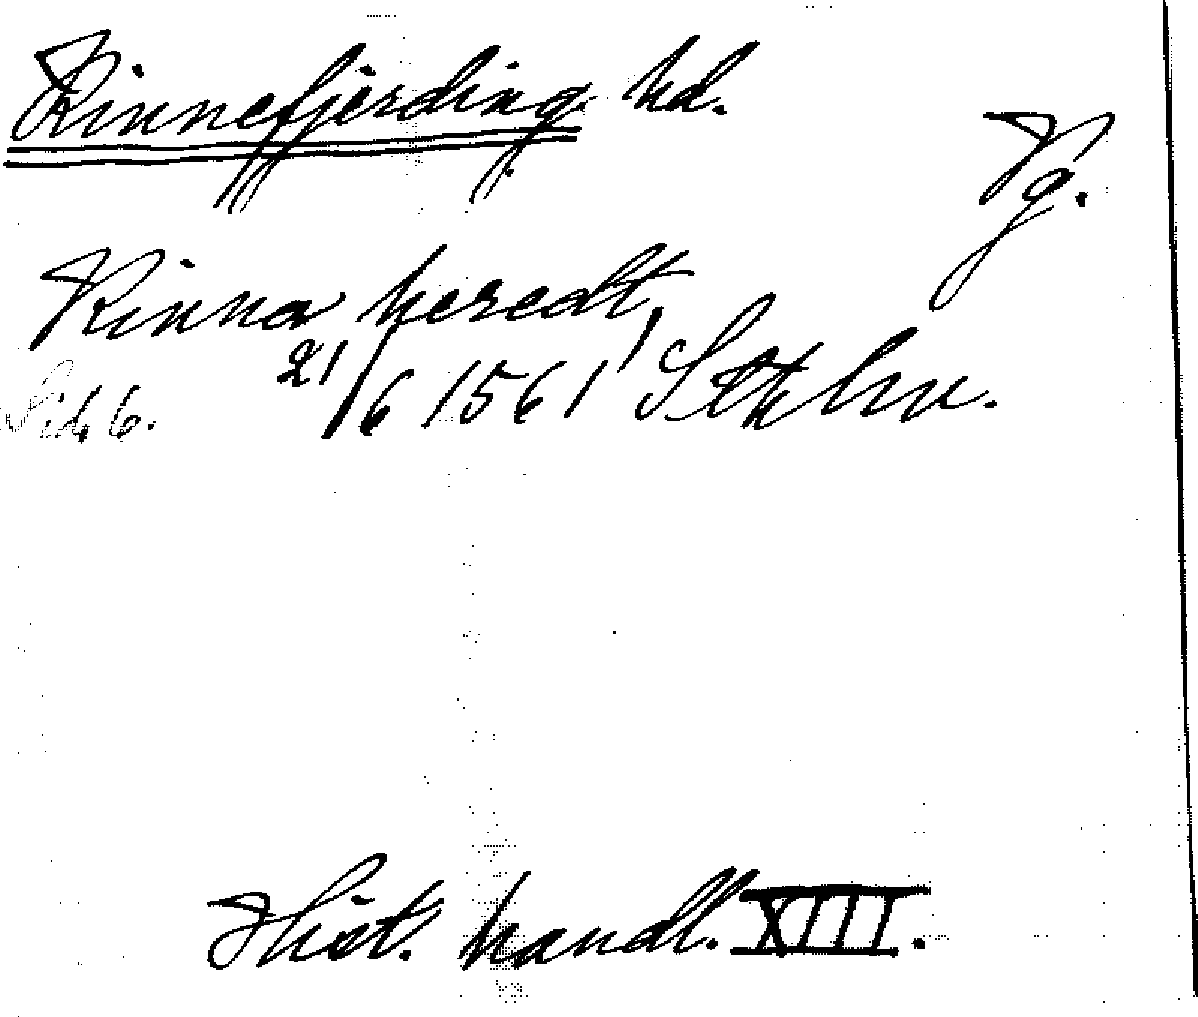 Kinnefjerding hd.
Vg.
Kinna heredt,
21/6 1561, Sthlm.
Sid. 6.
Hist. handl. XIII.